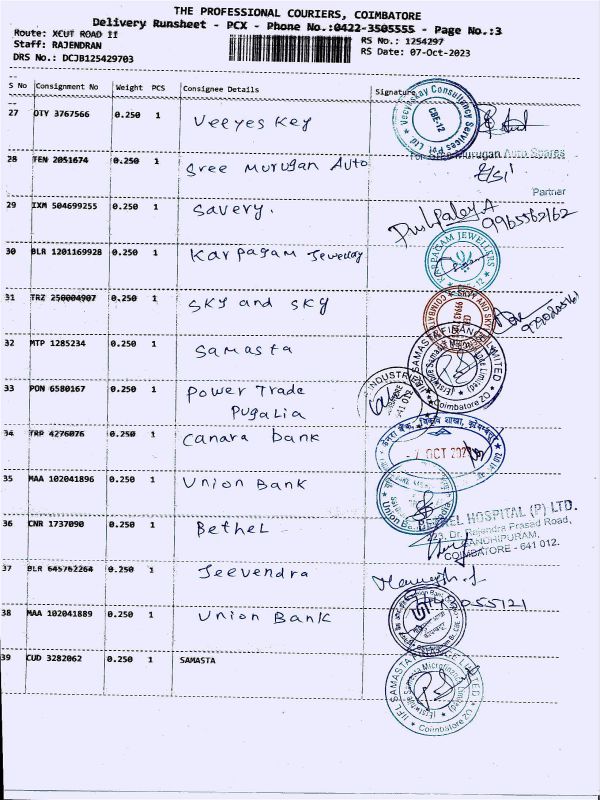 THE PROFESSIONAL COURIERS, COIMBATORE
Delivery Runsheet - PCX - Phone No.:0422-3505555 - Page No.:3
Route: XCUT ROAD II
RS No.: 1254297
Staff: RAJENDRAN
RS Date: 07-Oct-2023
DRS No.: DCJB125429703
S No Consignment No Weight PCS Consignee Details Signature
27 OTY 3767566 0.250 1 Veeyes Key
CBE-12
28 TEN 2051674 0.250 1 Sree Murugan Auto
for Sree Murugan Auto Spares
Partner
29 IXM 504699255 0.250 1 Savery.
9965562162
30 BLR 1201169928 0.250 1 Karpagam Jewellay
KARPAGAM JEWELLERS
31 TRZ 250004907 0.250 1 SKY and SKY
32 MTP 1285234 0.250 1 Samasta
IIFL SAMASTA FINANCE LIMITED
Coimbatore 20
33 PON 6580167 0.250 1 Power Trade
Pugalia
34 TRP 4276076 0.250 1 Canara bank
OCT
35 MAA 102041896 0.250 1 Union Bank
36 CNR 1737090 0.250 1 Bethel
BETHEL HOSPITAL (P) LTD.
423, Dr. Rajendra Prasad Road,
GANDHIPURAM,
COIMBATORE - 641 012.
37 BLR 645762264 0.250 1 Jeevendra
38 MAA 102041889 0.250 1 Union Bank
39 CUD 3282062 0.250 1 SAMASTA
IIFL SAMASTA FINANCE LIMITED
Coimbatore 20